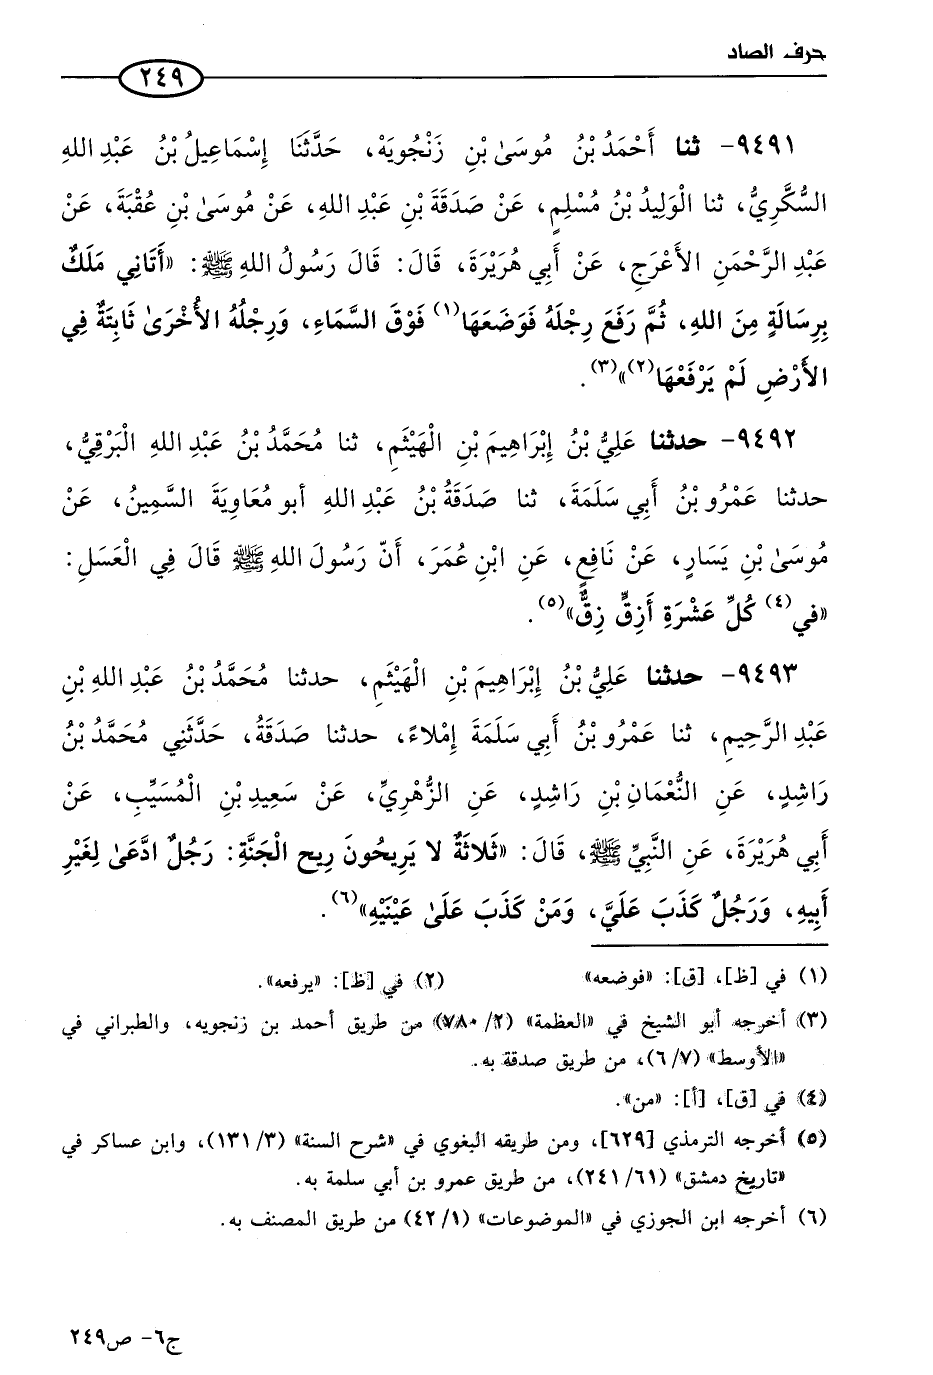 حرف الصاد
٢٤٩
٩٤٩١- ثنا أَحْمَدُ بْنُ مُوسَىٰ بْنِ زَنْجُويَهْ، حَدَّثَنَا إِسْمَاعِيلُ بْنُ عَبْدِ اللهِ
السُّكَّرِيُّ، ثنا الْوَلِيدُ بْنُ مُسْلِمٍ، عَنْ صَدَقَةَ بْنِ عَبْدِ اللهِ، عَنْ مُوسَىٰ بْنِ عُقْبَةَ، عَنْ
عَبْدِ الرَّحْمَنِ الأَعْرَجِ، عَنْ أَبِي هُرَيْرَةَ، قَالَ: قَالَ رَسُولُ اللهِ ﷺ: «أَتَانِي مَلَكٌ
بِرِسَالَةٍ مِنَ اللهِ، ثُمَّ رَفَعَ رِجْلَهُ فَوَضَعَهَا(١) فَوْقَ السَّمَاءِ، وَرِجْلُهُ الأُخْرَىٰ ثَابِتَةٌ فِي
الأَرْضِ لَمْ يَرْفَعْهَا(٢)»(٣).
٩٤٩٢- حدثنا عَلِيُّ بْنُ إِبْرَاهِيمَ بْنِ الْهَيْثَمِ، ثنا مُحَمَّدُ بْنُ عَبْدِ اللهِ الْبَرْقِيُّ،
حدثنا عَمْرُو بْنُ أَبِي سَلَمَةَ، ثنا صَدَقَةُ بْنُ عَبْدِ اللهِ أبو مُعَاوِيَةَ السَّمِينُ، عَنْ
مُوسَىٰ بْنِ يَسَارٍ، عَنْ نَافِعٍ، عَنِ ابْنِ عُمَرَ، أَنّ رَسُولَ اللهِ ﷺ قَالَ فِي الْعَسَلِ:
«في(٤) كُلِّ عَشْرَةِ أَزِقٍّ زِقٌّ»(٥).
٩٤٩٣- حدثنا عَلِيُّ بْنُ إِبْرَاهِيمَ بْنِ الْهَيْثَمِ، حدثنا مُحَمَّدُ بْنُ عَبْدِ اللهِ بْنِ
عَبْدِ الرَّحِيمِ، ثنا عَمْرُو بْنُ أَبِي سَلَمَةَ إِمْلاءً، حدثنا صَدَقَةُ، حَدَّثَنِي مُحَمَّدُ بْنُ
رَاشِدٍ، عَنِ النُّعْمَانِ بْنِ رَاشِدٍ، عَنِ الزُّهْرِيِّ، عَنْ سَعِيدِ بْنِ الْمُسَيِّبِ، عَنْ
أَبِي هُرَيْرَةَ، عَنِ النَّبِيِّ ﷺ، قَالَ: «ثَلاثَةٌ لا يَرِيحُونَ رِيح الْجَنَّةِ: رَجُلٌ ادَّعَىٰ لِغَيْرِ
أَبِيهِ، وَرَجُلٌ كَذَبَ عَلَيَّ، وَمَنْ كَذَبَ عَلَىٰ عَيْنَيْهِ»(٦).
(١) في [ظ]، [ق]: «فوضعه» (٢) في [ظ]: «يرفعه».
(٣) أخرجه أبو الشيخ في «العظمة» (٢/ ٧٨٠) من طريق أحمد بن زنجويه، والطبراني في
«الأوسط» (٧/ ٦)، من طريق صدقة به.
(٤) في [ق]، [أ]: «من».
(٥) أخرجه الترمذي [٦٢٩]، ومن طريقه البغوي في «شرح السنة» (٣/ ١٣١)، وابن عساكر في
«تاريخ دمشق» (٦١/ ٢٤١)، من طريق عمرو بن أبي سلمة به.
(٦) أخرجه ابن الجوزي في «الموضوعات» (١/ ٤٢) من طريق المصنف به.
ج٦- ص٢٤٩